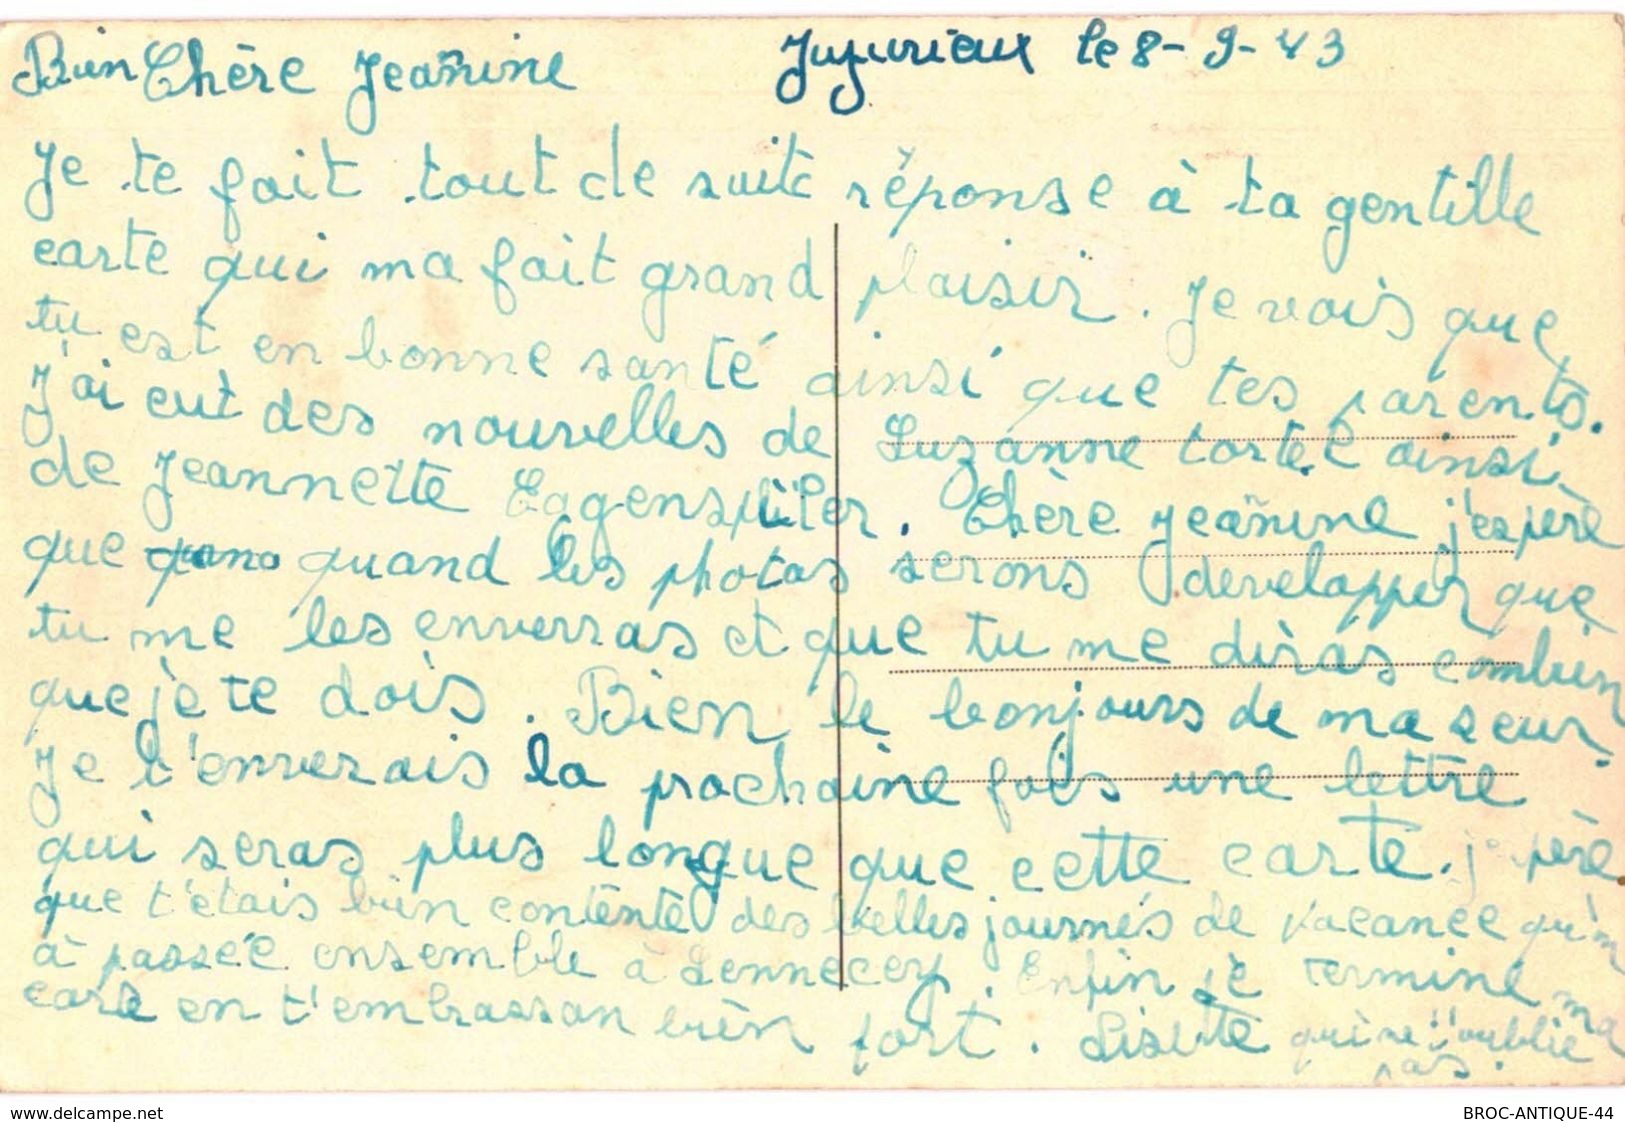 Jujurieux le 8-9-43
Bien Chère Jeanine
Je te fait tout de suite réponse à ta gentille
carte qui ma fait grand plaisir. Je vois que
tu est en bonne santé ainsi que tes parents.
J'ai eut des nouvelles de Suzanne ainsi
de Jeannette . Chère Jeanine j'espère
que quand les photos serons developper que
tu me les enverras et que tu me diras combien
que je te dois. Bien le bonjours de ma seur.
Je t'enverais la prochaine fois une lettre
qui seras plus longue que cette carte. j'espère
que t'étais bien contente des belles journés de vacance qu'on
à passée ensemble à Sennecey. Enfin je termine ma
carte en t'embrassan bien fort. Lisette qui ne t'oublie
pas.
www.delcampe.net
BROC-ANTIQUE-44